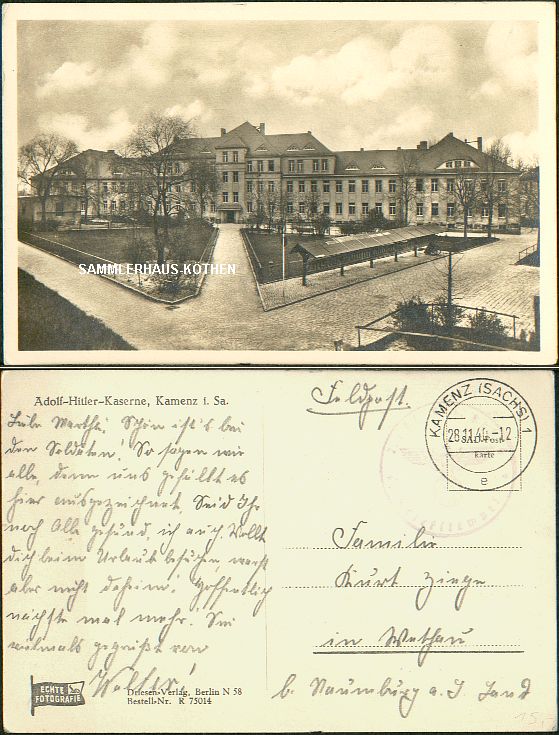 SAMMLERHAUS-KÖTHEN
Adolf-Hitler-Kaserne, Kamenz i. Sa.
Feldpost.
KAMENZ (SACHS) 1
28.11.40-12
e
SAD-Post-
karte
Schön ist's bei
den Soldaten! So sagen wir
alle, denn uns gefällt es
hier ausgezeichnet. Seid Ihr
noch alle gesund, ich auch. Wollt
Dich beim Urlaub besuchen, warst
aber nicht daheim. Hoffentlich
nächste mal mehr. Sei
vielmals gegrüßt von
Walter!
Familie
Kurt Ziege
in Wethau
b. Naumburg a. S. Land
ECHTE
FOTOGRAFIE
Driesen-Verlag, Berlin N 58
Bestell-Nr. R 75014
15,